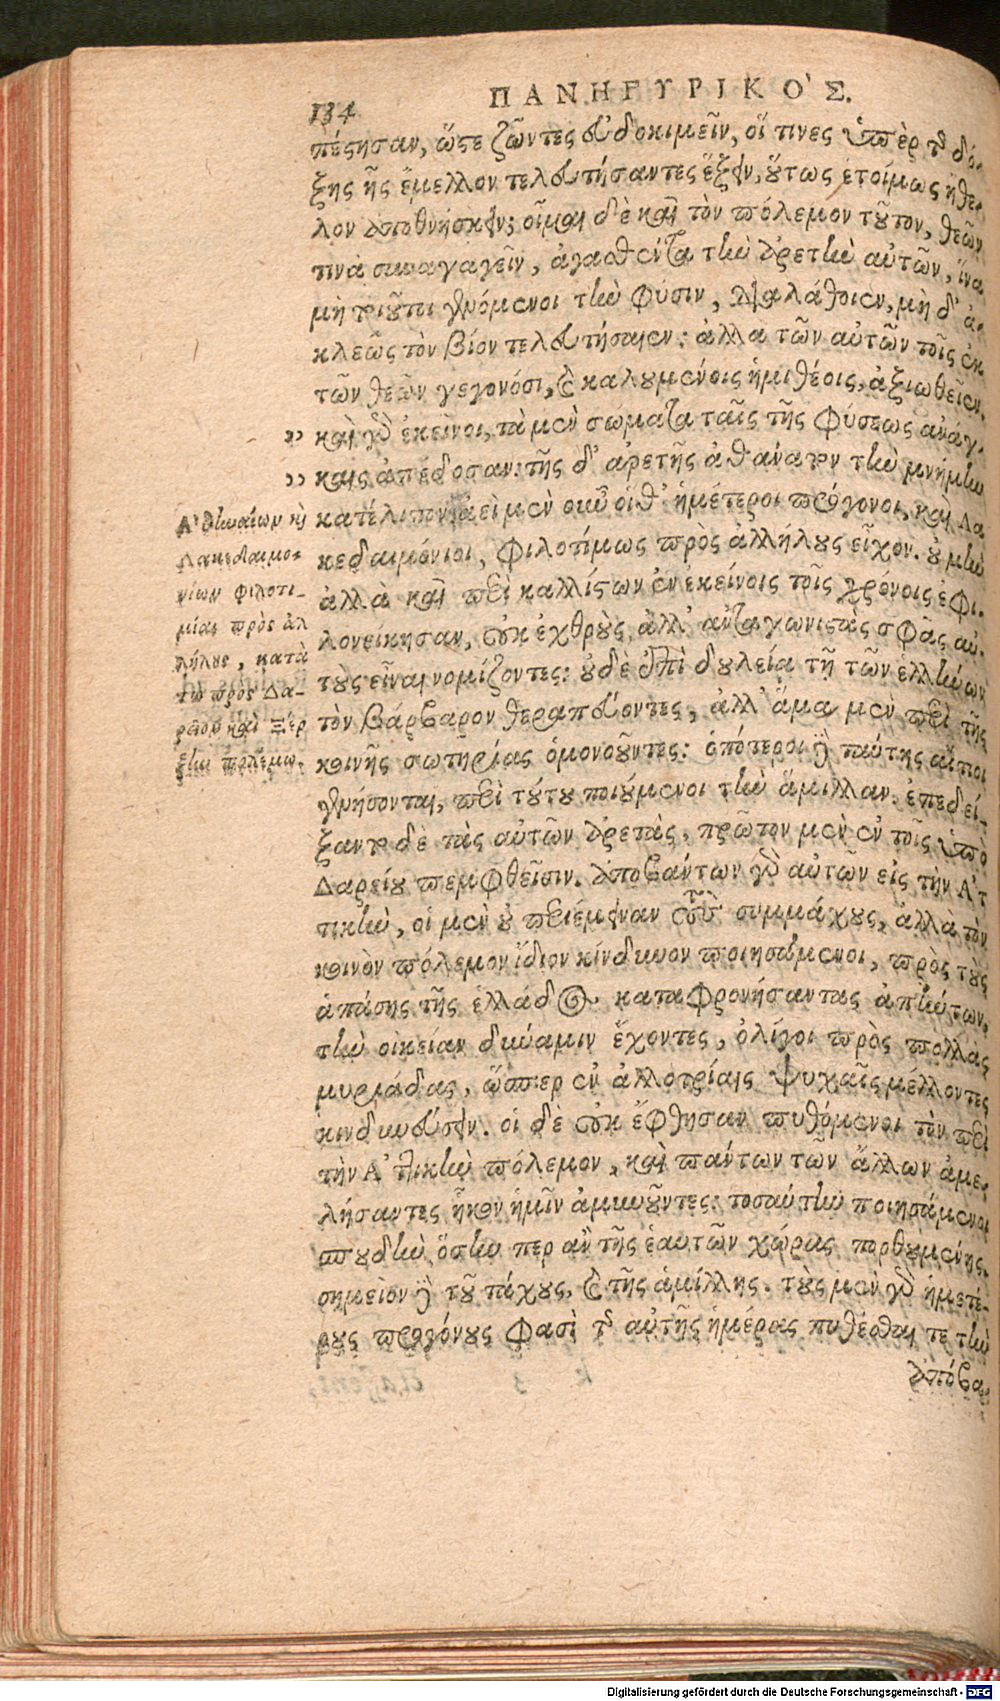 134
ΠΑΝΗΓΥΡΙΚΟ'Σ.
πέςησαν, ὥςε ζῶντες εὐδοκιμεῖν, οἵ τινες ὑπὲρ τῆς δό-
ξης ἧς ἔμελλον τελευτήσαντες ἕξειν, οὕτως ἑτοίμως ἤθε-
λον ἀποθνήσκειν; οἶμαι δὲ καὶ τὸν πόλεμον τοῦτον, θεῶν
τινὰ συναγαγεῖν, ἀγασθέντα τὴν ἀρετὴν αὐτῶν, ἵνα
μὴ τοιοῦτοι γενόμενοι τὴν φύσιν, διαλάθοιεν, μὴ δ' ἀ-
κλεῶς τὸν βίον τελευτήσαιεν: ἀλλα τῶν αὐτῶν τοῖς ἐκ
τῶν θεῶν γεγονόσι, καὶ καλουμένοις ἡμιθέοις, ἀξιωθεῖεν.
,, καὶ γὰρ ἐκεῖνοι, τὰ μὲν σώματα ταῖς τῆς φύσεως ἀνάγ-
,, καις ἀπέδοσαν: τῆς δ' ἀρετῆς ἀθάνατον τὴν μνήμην
κατέλιπον ἀεὶ μὲν οὖν οἵθ' ἡμέτεροι πρόγονοι, καὶ Λα
κεδαιμόνιοι, φιλοτίμως πρὸς ἀλλήλους εἶχον. οὐ μὴν
ἀλλὰ καὶ περὶ καλλίστων ἐν ἐκείνοις τοῖς χρόνοις ἐφι-
λονείκησαν, οὐκ ἐχθροὺς ἀλλ' ἀνταγωνιστὰς σφᾶς αὐ-
τοὺς εἶναι νομίζοντες: οὐδὲ ἐπὶ δουλείᾳ τῇ τῶν ἑλλήνων
τὸν βάρβαρον θεραπεύοντες, ἀλλ' ἅμα μὲν περὶ τῆς
κοινῆς σωτηρίας ὁμονοοῦντες: ὁπότεροι δὲ ταύτης αἴτιοι
γενήσονται, περὶ τούτου ποιούμενοι τὴν ἅμιλλαν. ἐπεδεί-
ξαντο δὲ τὰς αὐτῶν ἀρετὰς, πρῶτον μὲν ἐν τοῖς ὑπὸ
Δαρείου πεμφθεῖσιν. ἀποβάντων γὰρ αὐτῶν εἰς τὴν Α'τ
τικὴν, οἱ μὲν οὐ περιέμειναν τοὺς συμμάχους, ἀλλὰ τὸν
κοινὸν πόλεμον ἴδιον κίνδυνον ποιησάμενοι, πρὸς τοὺς
ἁπάσης τῆς ἑλλάδος καταφρονήσαντας ἀπήντων,
τὴν οἰκείαν δύναμιν ἔχοντες, ὀλίγοι πρὸς πολλὰς
μυριάδας, ὥσπερ ἐν ἀλλοτρίαις ψυχαῖς μέλλοντες
κινδυνεύσειν. οἱ δὲ οὐκ ἔφθησαν πυθόμενοι τὸν περὶ
τὴν Α'ττικὴν πόλεμον, καὶ πάντων τῶν ἄλλων ἀμε-
λήσαντες ἧκον ἡμῖν ἀμυνοῦντες: τοσαύτην ποιησάμενοι
σπουδὴν ὅσην περ ἂν τῆς ἑαυτῶν χώρας πορθουμένης.
σημεῖον δὲ τοῦ τάχους, καὶ τῆς ἁμίλλης. τοὺς μὲν γὰρ ἡμετέ-
ρους προγόνους φασὶ τῆς αὐτῆς ἡμέρας πυθέσθαι τε τὴν
ἀπόβα-
Α'θηναίων καὶ
Λακεδαιμο-
νίων φιλοτι-
μίαι πρὸς ἀλ
λήλους, κατὰ
τὸν πρὸς Δα-
ρεῖον καὶ Ξέρ
ξην πόλεμον.
Digitalisierung gefördert durch die Deutsche Forschungsgemeinschaft - DFG